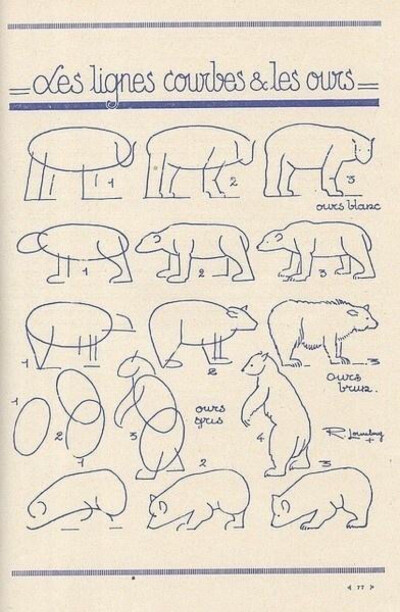 Les lignes courbes & les ours
1
2
3
ours blanc
1
2
3
1
2
3
ours
brun.
1
2
1
3
ours
gris
4
2
3
77